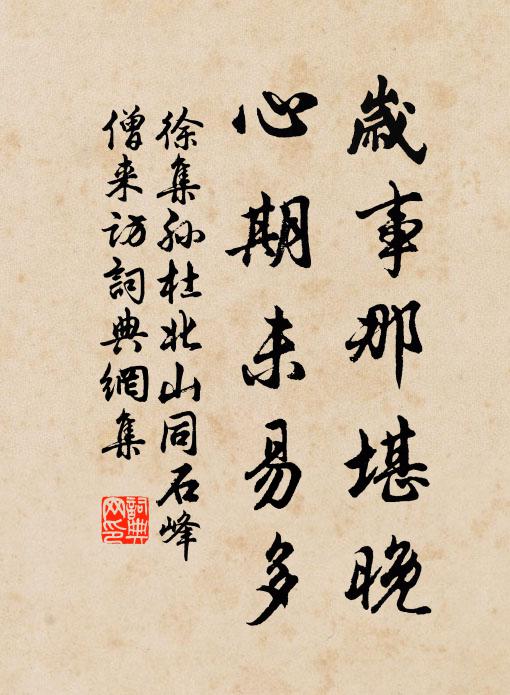 歲事那堪晚
心期未易多
徐集孫杜北山同石峰
僧来訪詞典網集
詞典
网印